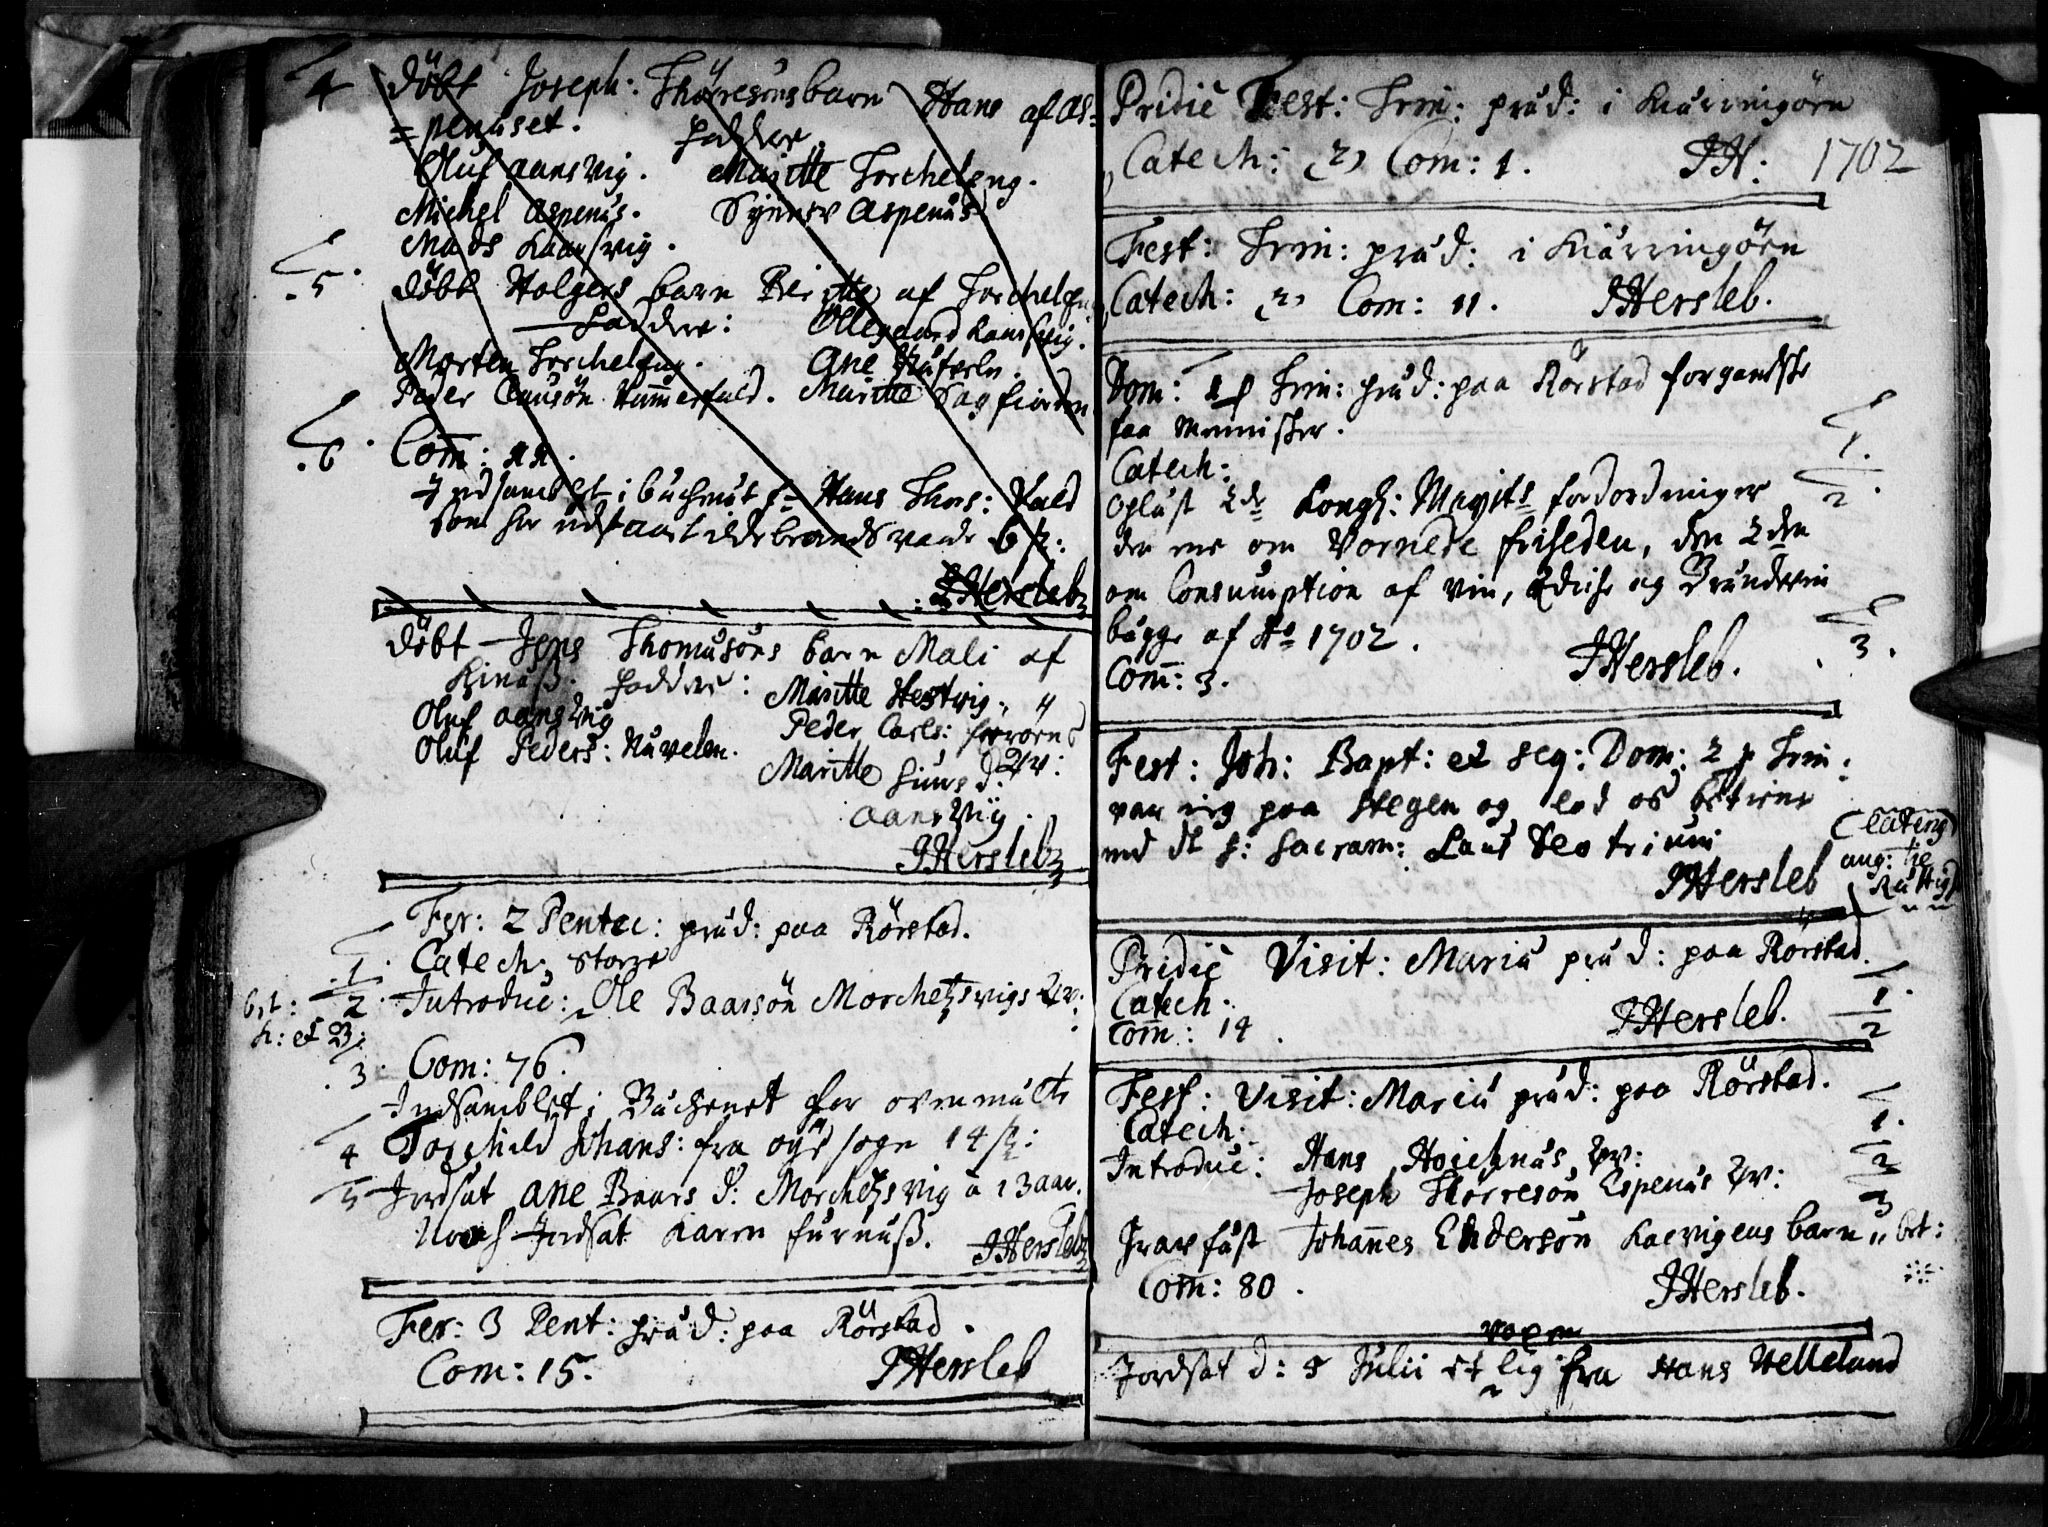 4 döbt Joseph: Thørresøns barn Hans af Es-
=penuset. Faddere
Oluf aansvig. Maritte Torcheleng.
Michel Espenus. Synnev Aspenus
Mads Kaansvig.
5. döbt Holgers barn Beritte af Torcheleng
Faddere: Ollegaard Kaansvig.
Morten Torcheleng. Ane
Peder Clausön Hammerfald. Maritte Sagfiorden
6. Com̄: 22.
Indsamblet i buchenet fr Hans Thors: Vald
som hr udstaaet ildebrands vaade 6 β:
JHersleb
döbt Jens Thomasøns barn Mali af
Kinaß. Faddere: Maritte Hestvig:
Oluf aansvig Peder Carls:
Oluf Peders: Navelen.
Maritte Hans d:
aansvig.
JHersleb
Fer: 2 Pentec: præd: paa Rörstad.
1. Catech: Storre
bet: 2. Introduc: Ole Baarsön Morchesvigs Qv:
h: et B:
3. Com: 76.
Indsamblet i Buchenet for
4 Torchild Johans: fra sogn 14 β:
5 Jordsat Ane Baars d: Morchesvig a 13 aar.
Noch Jordsat Karen Furnuß. JHersleb
Fer: 3 Pent: præd: paa Rörstad.
Com: 15. JHersleb
Pridie Fest: Trin: præd: i Kiærringöen
Catech: Com: 1. JH: 1702
Fest: Trin: præd: i Kiærringöen
Catech: Com: 11. JHersleb.
Dom: 1 p Trin: præd: paa Rörstad forgandske
faa Mennisker.
Catech: 1.
oplæst 2de Kongl: Mayts fordordninger 2.
den ene om Vornede friheden, den 2den
om Consumption af vin, Edicke og Brændevin
bugge af Ao 1702. 3.
Com̄: 3. JHersleb.
Fest: Joh: Bapt: et seq: Dom: 2 p Trin:
var ieg paa Stegen og lod os betiene
med det h: Sacram: Laus Deo triuni
JHersleb
Pridie Visit: Mariæ præd: paa Rorstad.
Catech: 1.
Com̄: 14. JHersleb. 2
Fest: Visit: Mariæ præd: paa Rörstad.
Catech: 1.
Introduc: Hans Qv: 2
Joseph Thorresön Espenus Qv: 3
Gravfæst Johannes Endersön Kaevigens barn bet:
Com̄: 80. JHersleb.
voxen
Jordsat d: 5 Julii et lig fra Hans Helleland